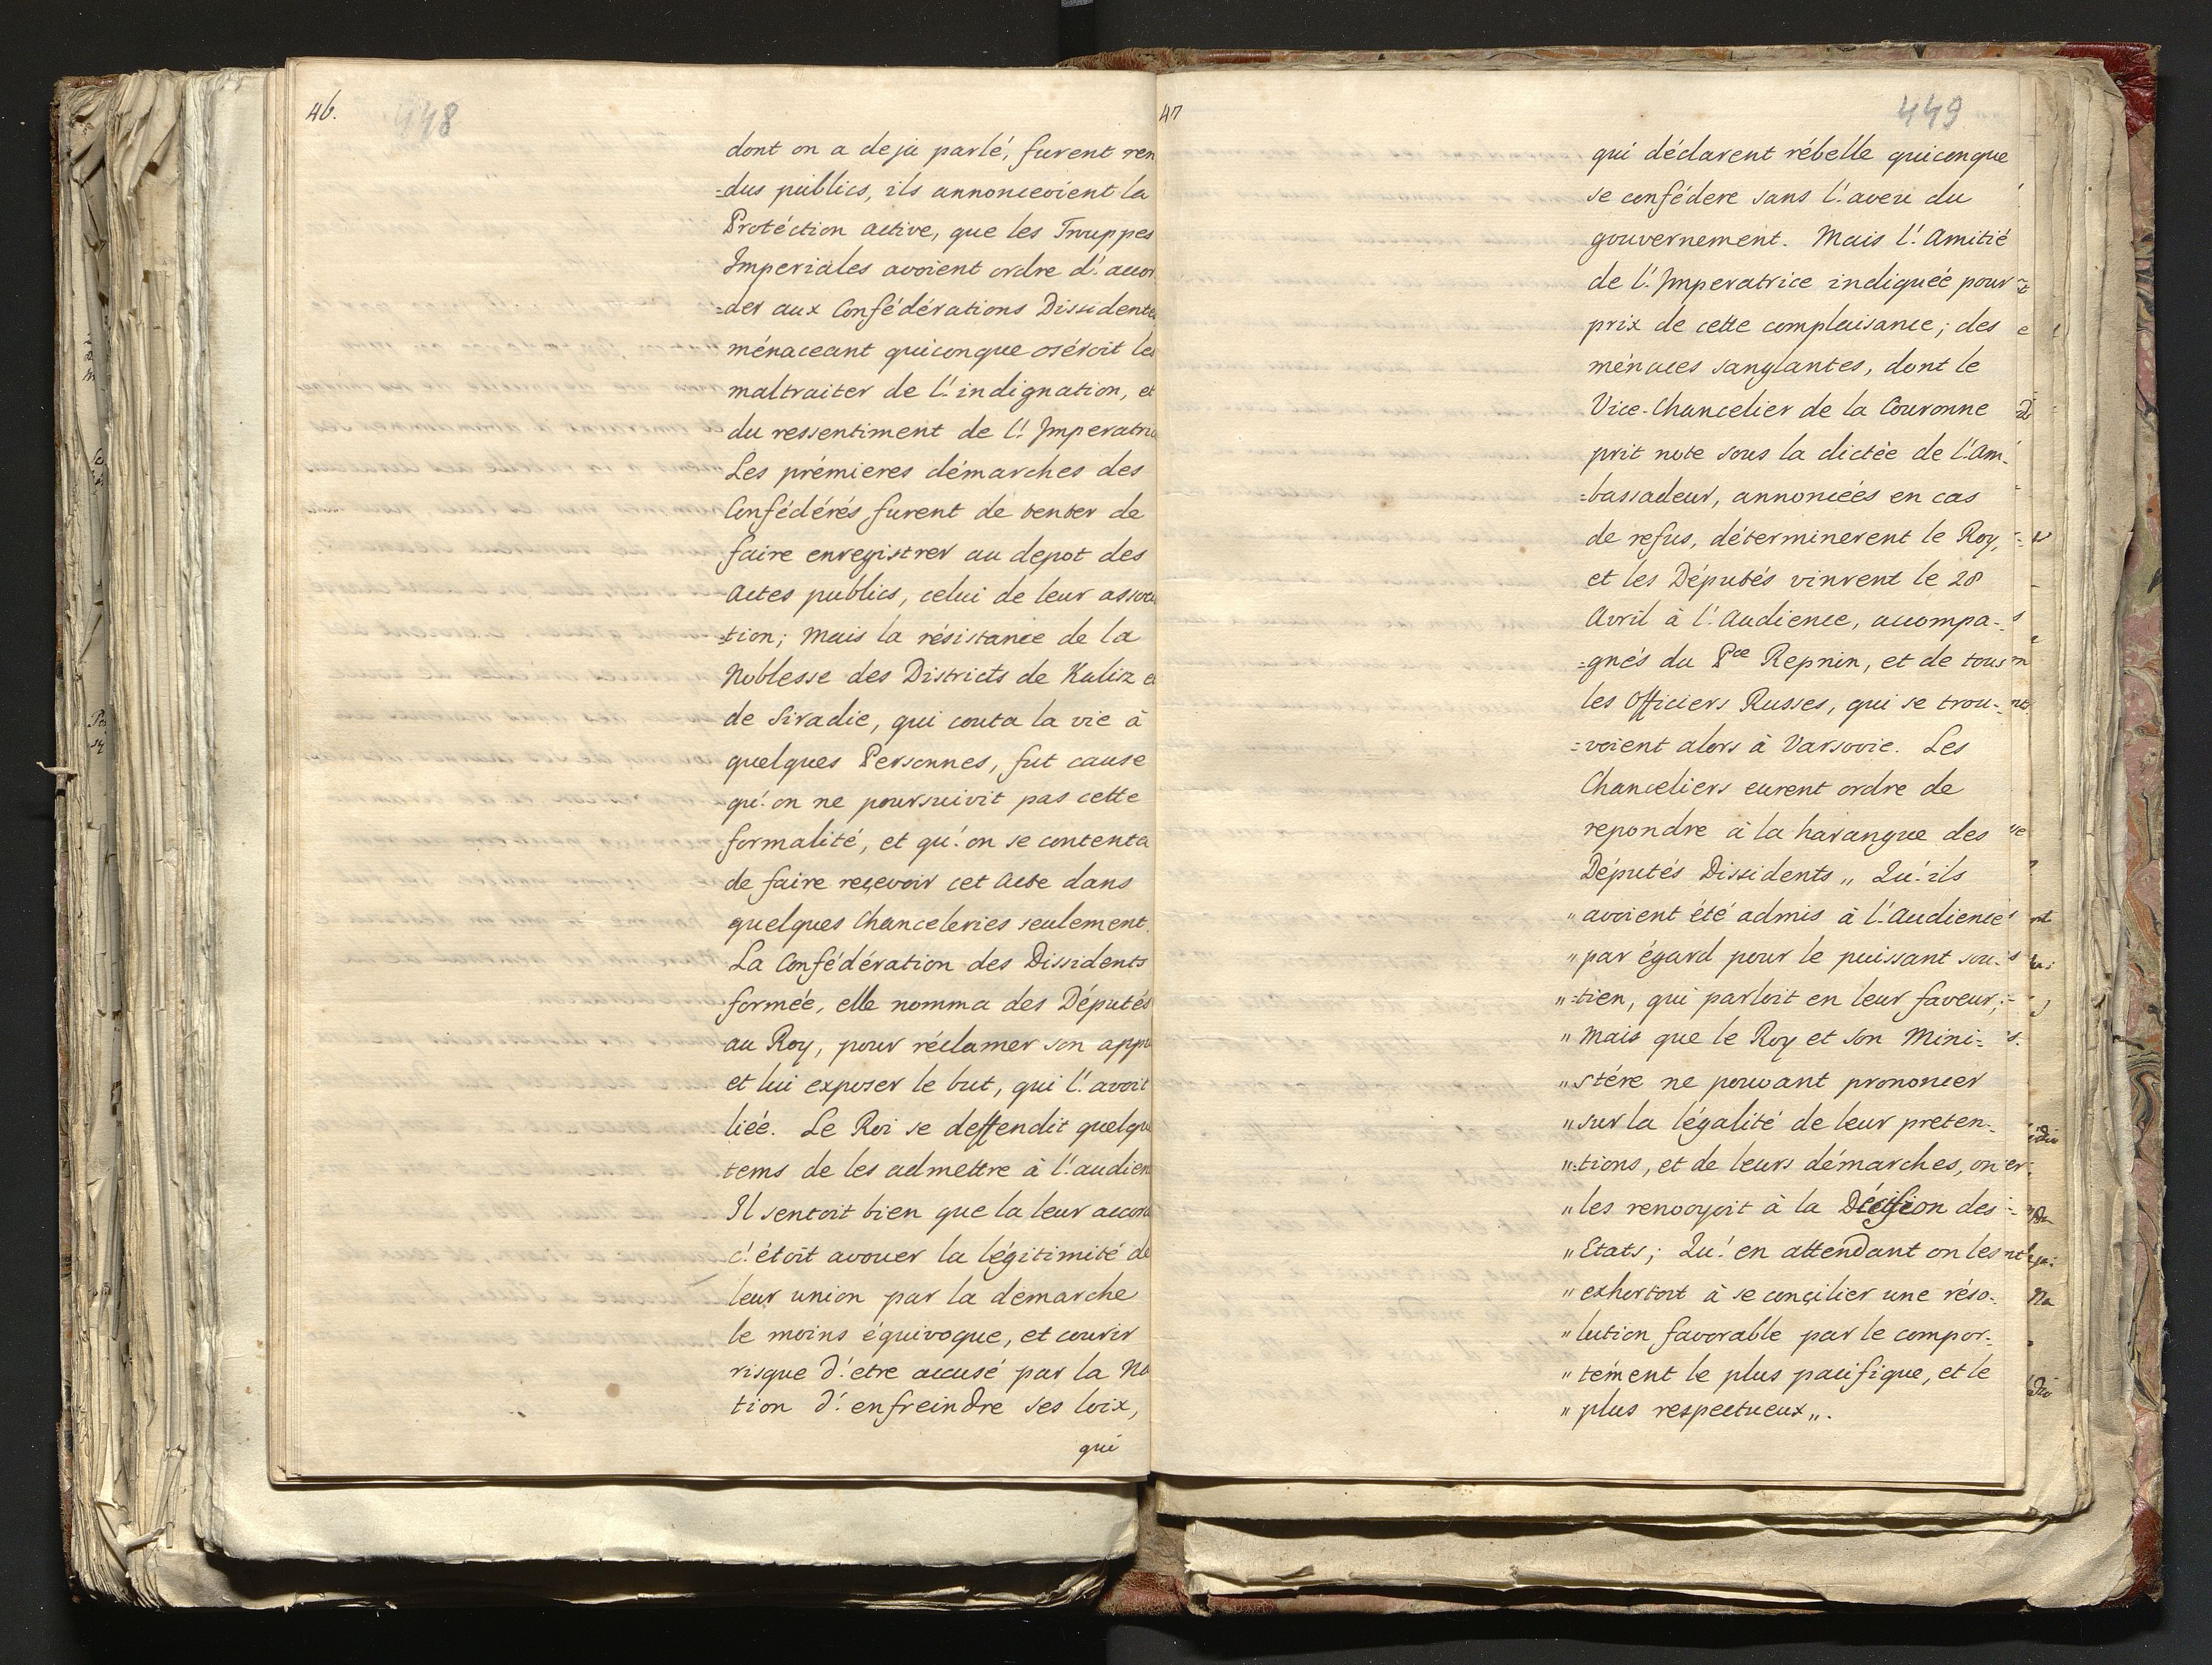 46.
448
dont on a deja parlé, furent ren
=dus publics, ils annoncoient la
Protéction active, que les Trouppes
Imperiales avoient ordre d'accor
=der aux Confédérations Dissidentes
ménaceant quiconque oséroit les
maltraiter de l'indignation, et
du ressentiment de l'Imperatrice
Les prémieres démarches des
Confédérés furent de tenter de
faire enregistrer au depot des
Actes publics, celui de leur associa
=tion; Mais la résistance de la
Noblesse des Districts de Kalisz et
de Siradie, qui couta la vie à
quelques Personnes, fut cause
qu'on ne poursuivit pas cette
formalité, et qu'on se contenta
de faire reçevoir cet Acte dans
quelques Chanceleries seulement.
La Confédération des Dissidents
formée, elle nomma des Députés
au Roy, pour réclamer son appui
et lui exposer le but, qui l'avoit
liéé. Le Roi se deffendit quelque
tems de les admettre à l'audien
Il sentoit bien que la leur accord
c'étoit avouer la légitimité de
leur union par la demarche
le moins équivoque, et courir
risque d'etre accusé par la Na
tion d'enfreindre ses loix,
qui
47
449
qui déclarent rébelle quiconque
se confédere sans l'aveu du
gouvernement. Mais l'Amitié
de l'Imperatrice indiquéé pour
prix de cette complaisance; des
ménaces sanglantes, dont le
Vice-Chancelier de la Couronne
prit note sous la dictée de l'Am=
=bassadeur, annoncéés en cas
de refus, déterminerent le Roy,
et les Députés vinrent le 28
Avril à l'Audience, accompa=
=gnés du Pce Repnin, et de tous
les Officiers Russes, qui se trou=
=voient alors à Varsovie. Les
Chanceliers eurent ordre de
repondre à la harangue des
Députés Dissidents „ Qu'ils
„ avoient été admis à l'Audience
„ par égard pour le puissant sou=
„ =tien, qui parloit en leur faveur;
„ Mais que le Roy et son Mini=
„ stére ne pouvant prononcer
„ sur la légalité de leur preten=
„ =tions, et de leurs démarches, on
„ les renvoyoit à la Décision des
„ Etats; Qu'en attendant on les
„ exhortoit à se conçilier une réso=
„ lution favorable par le compor=
„ tément le plus pacifique, et le
„ plus respectueux „.